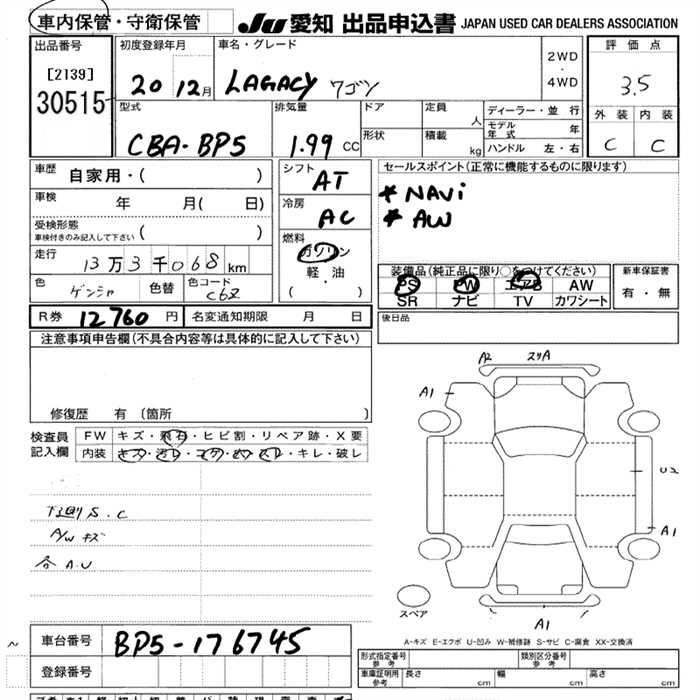 車内保管・守衛保管 JU 愛知 出品申込書 JAPAN USED CAR DEALERS ASSOCIATION
出品番号 初度登録年月 車名・グレード 2WD・4WD 評価点
[2139] 20 12月 LAGACY ワゴン 3.5
30515
型式 排気量 ドア 定員 人 ディーラー・並行 外装 内装
CBA-BP5 1.99 CC 形状 積載 kg モデル年式 年 C C
ハンドル 左・右
車歴 自家用・( ) シフト AT セールスポイント(正常に機能するものに限ります)
車検 年 月( 日) 冷房 AC * NAVi
受検形態 車検付きのみ記入して下さい ( ) * AW
燃料 ガソリン
走行 13万3千068km 軽・油 装備品(純正品に限り○をつけてください) 新車保証書
( ) PS PW エアB AW 有・無
色 ゲンシャ 色替 色コード C6Z SR ナビ TV カワシート
R券 12760 円 名変通知期限 月 日 後日品
注意事項申告欄(不具合内容等は具体的に記入して下さい)
修復歴 有 (箇所 )
A2 スリA
A1
検査員記入欄 FW キズ・飛石・ヒビ割・リペア跡・X要
内装 キズ・汚レ・コゲ・穴・スレ・キレ・破レ
下回りS.C
A/W キズ
A.U
A1
スペア
A1
A-キズ E-エクボ U-凹み W-補修跡 S-サビ C-腐食 XX-交換済
車台番号 BP5-176745
登録番号
形式指定番号 参考 類別区分番号 参考
車庫証明用 参考 長さ cm 幅 cm 高さ cm